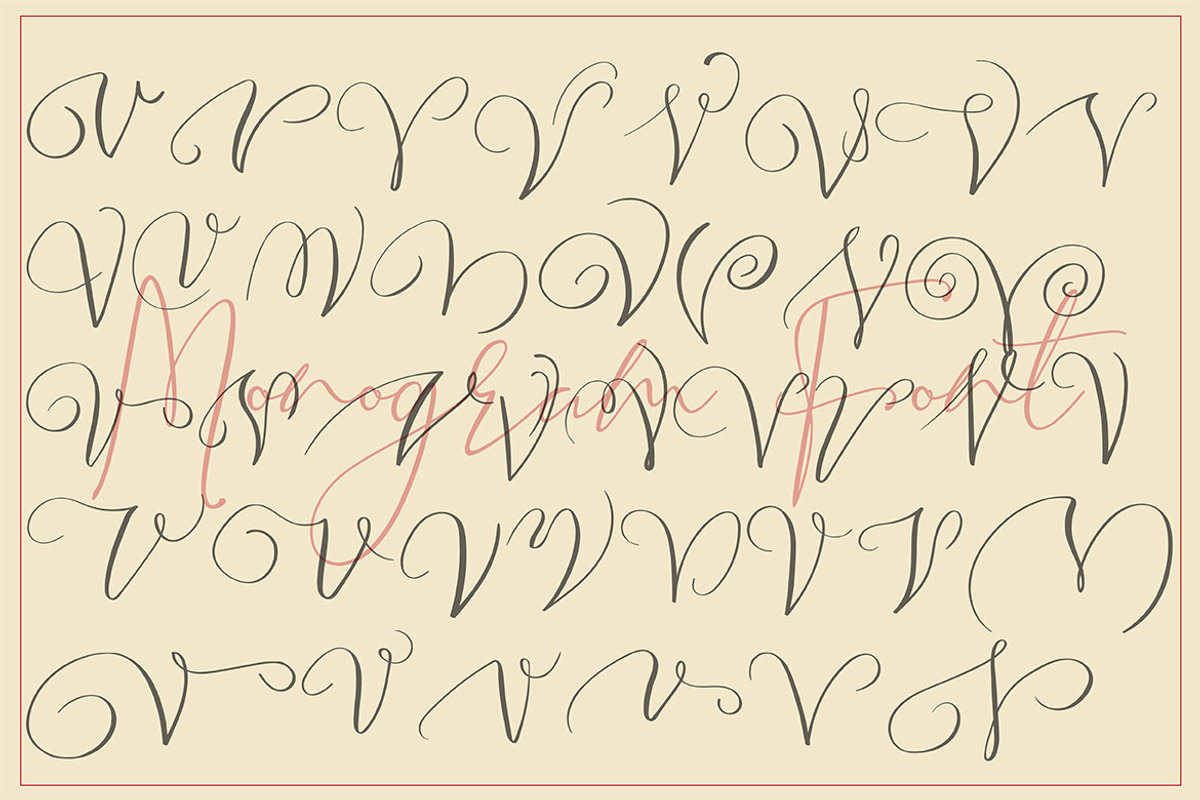 V V V V V V V V
V V V V V V V V
Monogram Font
V V V V V V V V V
V V V V V V V V
V V V V V V